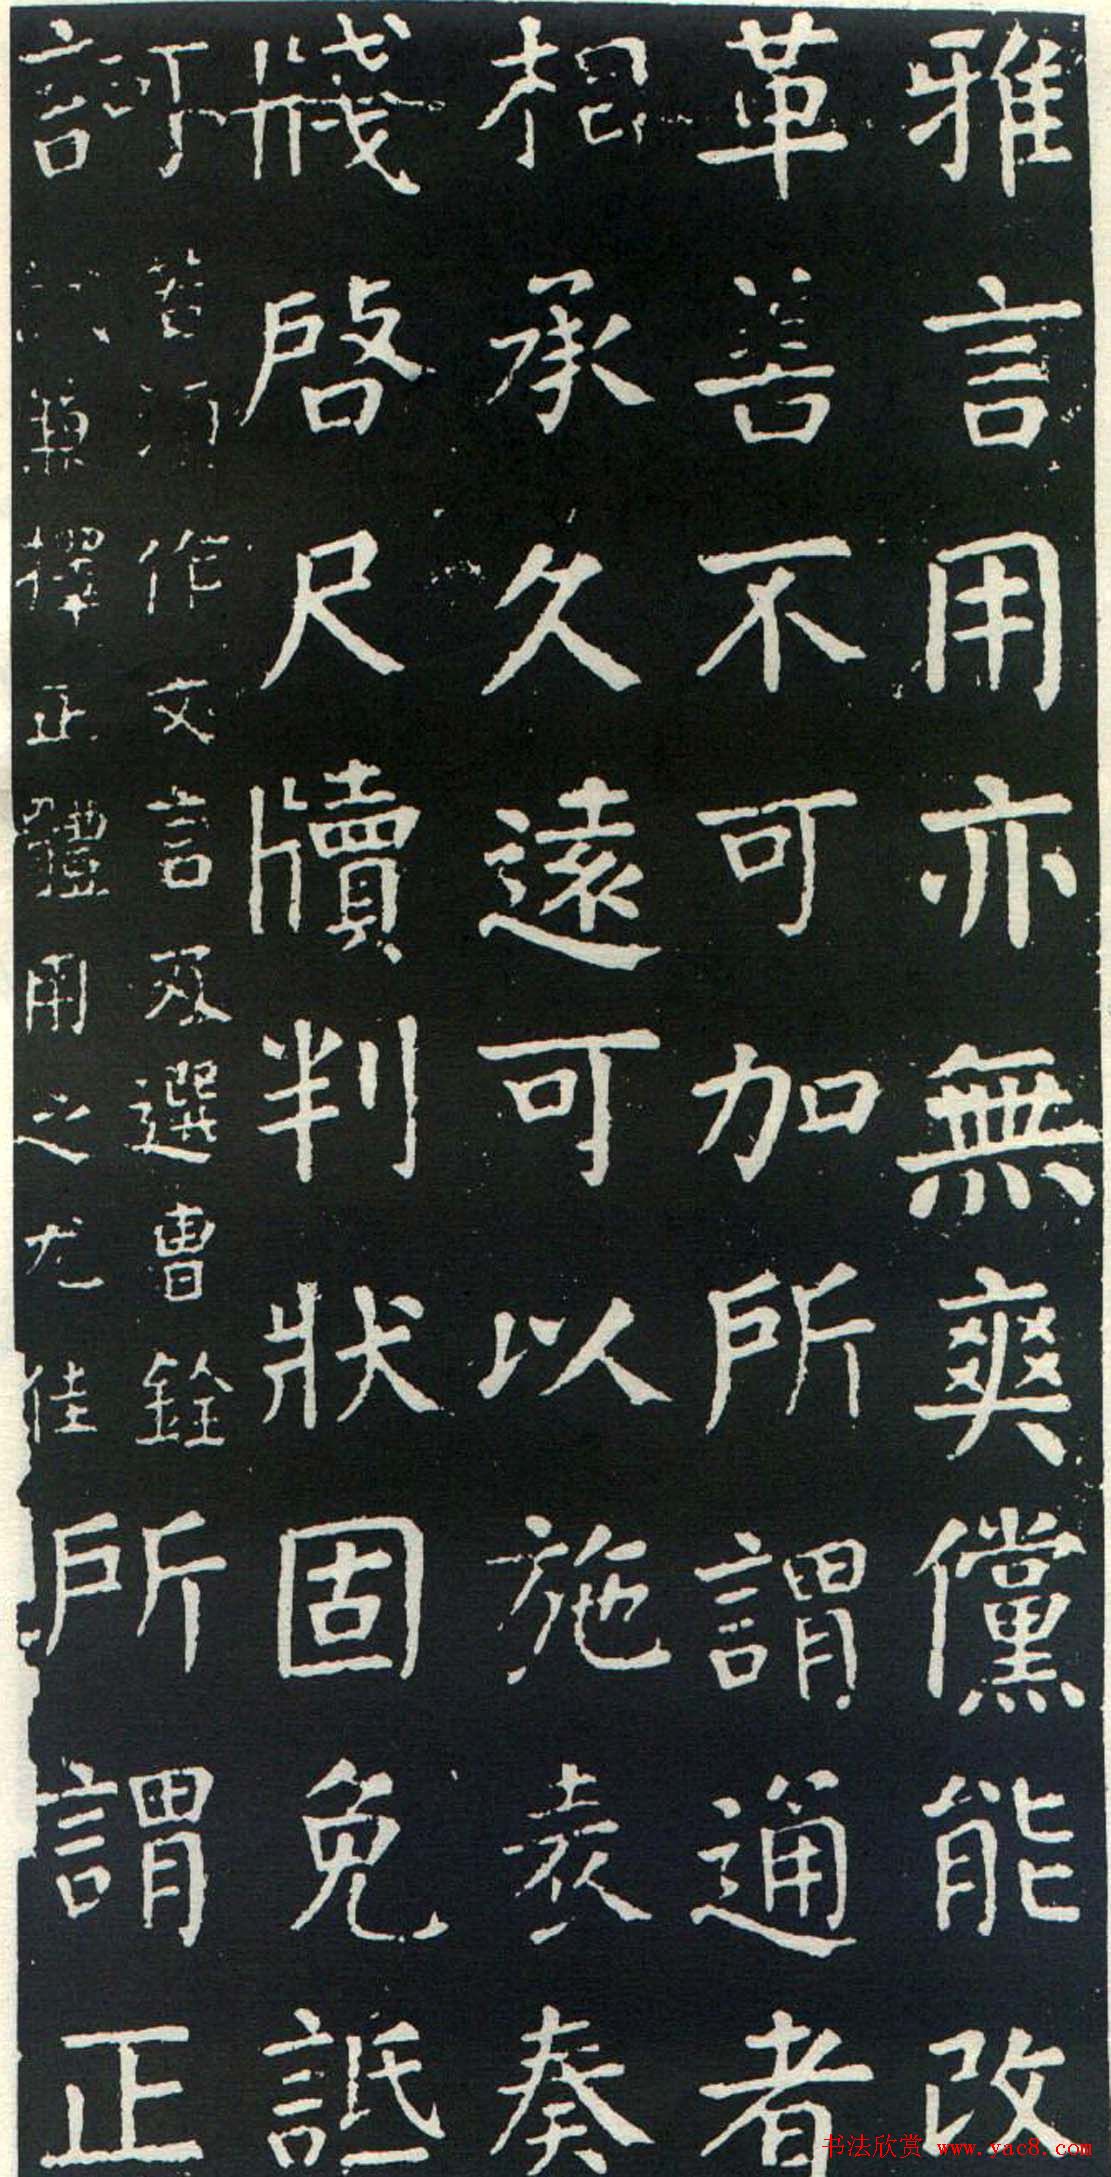 雅言用亦無爽儻能改
革善不可加所謂通者
相承久遠可以施表奏
牋啓尺牘判狀固免詆
訶
若作文言及選曹銓
兼擇正體用之尤佳
所謂正
书法欣赏 www.yac8.com